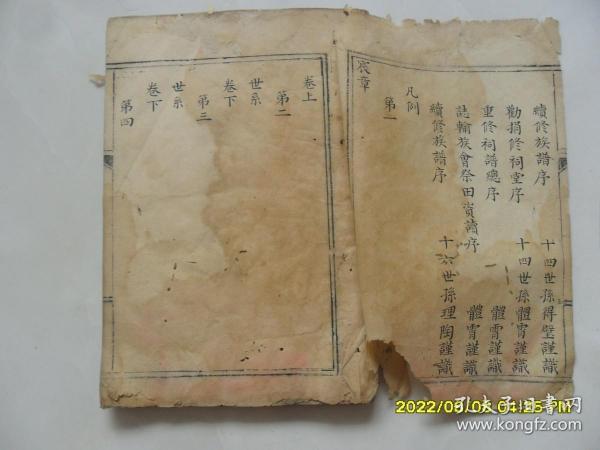 續修族譜序 十四世孫得璧謹識
勸捐修祠堂序 十四世孫體霄謹識
重修祠譜總序 體霄謹識
誌輸族會祭田資讀序 體霄謹識
續修族譜序 十六世孫理陶謹識
第一
凡例
宸章
卷上
第二
世系
卷下
第三
世系
卷下
第四
孔夫子旧书网
www.kongfz.com